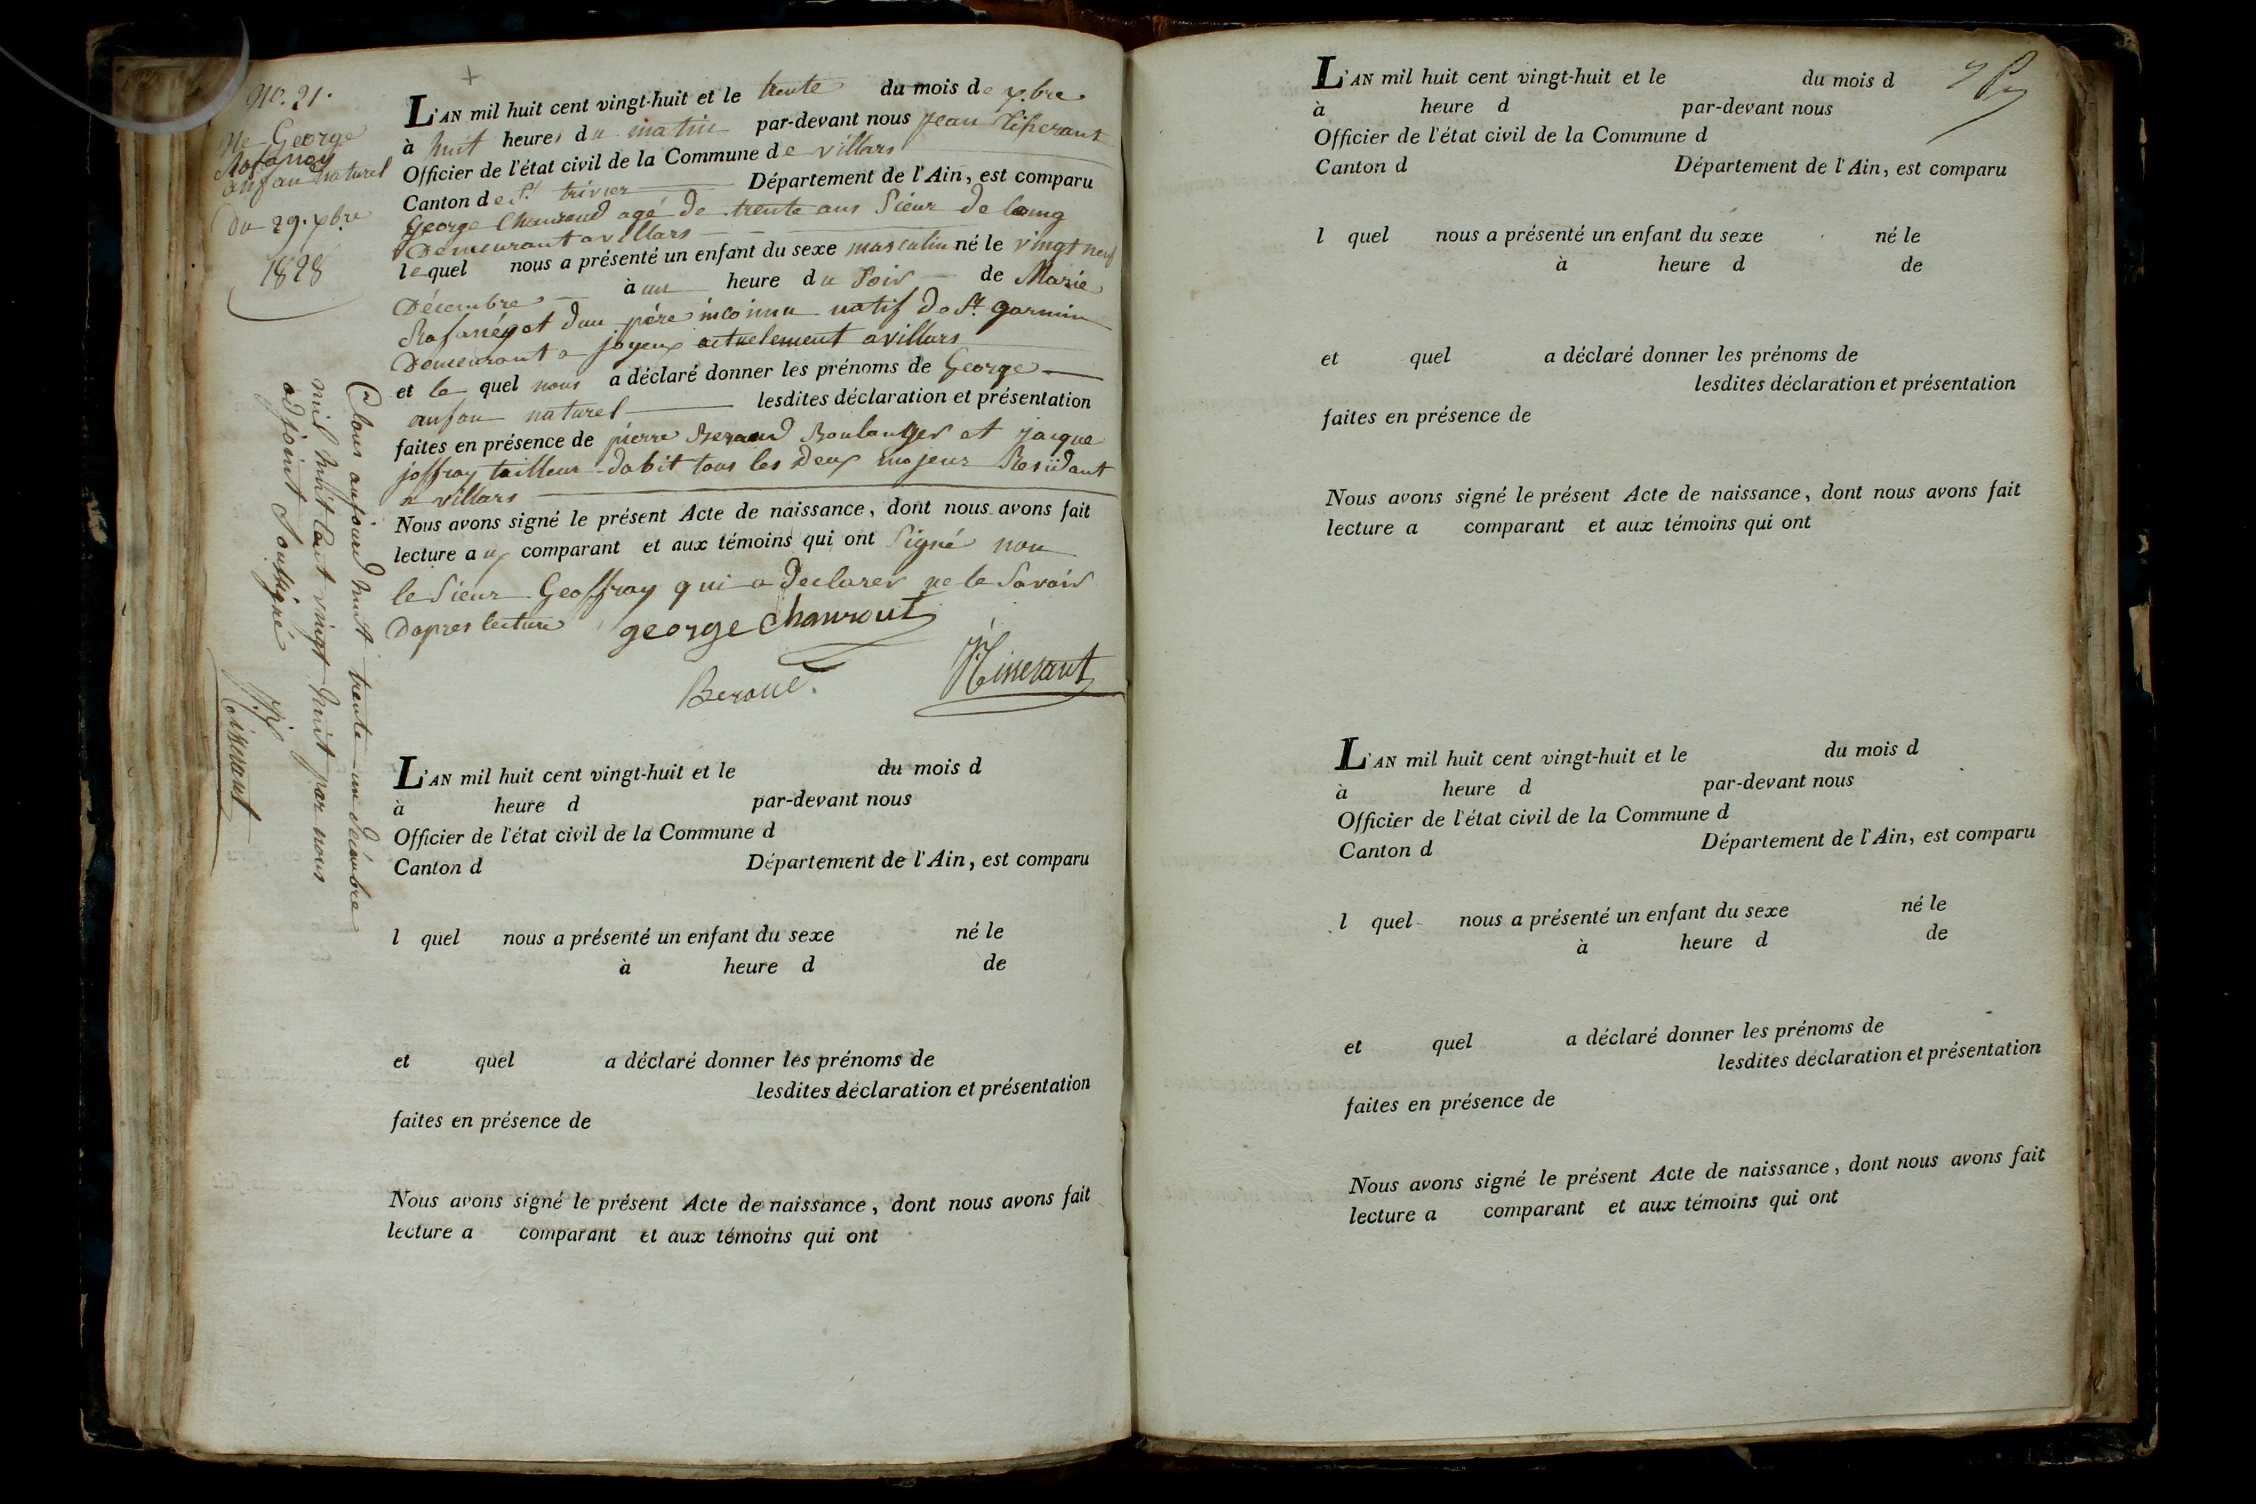 No. 21.
Ne George
Rofaney
anfan naturel
Du 29. xbre
1828
L'AN mil huit cent vingt-huit et le trente du mois de xbre
à huit heures du matin par-devant nous Jean Tisserant
Officier de l'état civil de la Commune de villars
Canton de St. trivier Département de l'Ain, est comparu
George Chaurand agé de trente ans Sieur de long
Demeurant a villars
lequel nous a présenté un enfant du sexe masculin né le vingt neuf
Décembre à un heure du Soir de Marie
Rofaney et dun père inconnu natif de St. garmin
Demeurant a joyeux actuelement a villars
et le quel nous a déclaré donner les prénoms de George
anfan naturel lesdites déclaration et présentation
faites en présence de pierre Beraud Boulanger et jacque
joffray tailleur dabit tous les deux majeur Residant
a villars
Nous avons signé le présent Acte de naissance, dont nous avons fait
lecture aux comparant et aux témoins qui ont Signé non
le Sieur Geoffray qui a declarer ne le Savoir
Dapres lecture george chanrout
Beraud. Tisserant
Clous aujourdhuit trente un décembre
mil huit cent vingt huit par nous
adjoint Soussigné
Tisserant
L'AN mil huit cent vingt-huit et le du mois d
à heure d par-devant nous
Officier de l'état civil de la Commune d
Canton d Département de l'Ain, est comparu
l quel nous a présenté un enfant du sexe né le
à heure d de
et quel a déclaré donner les prénoms de
lesdites déclaration et présentation
faites en présence de
Nous avons signé le présent Acte de naissance, dont nous avons fait
lecture a comparant et aux témoins qui ont
L'AN mil huit cent vingt-huit et le du mois d
à heure d par-devant nous
Officier de l'état civil de la Commune d
Canton d Département de l'Ain, est comparu
l quel nous a présenté un enfant du sexe né le
à heure d de
et quel a déclaré donner les prénoms de
lesdites déclaration et présentation
faites en présence de
Nous avons signé le présent Acte de naissance, dont nous avons fait
lecture a comparant et aux témoins qui ont
L'AN mil huit cent vingt-huit et le du mois d
à heure d par-devant nous
Officier de l'état civil de la Commune d
Canton d Département de l'Ain, est comparu
l quel nous a présenté un enfant du sexe né le
à heure d de
et quel a déclaré donner les prénoms de
lesdites déclaration et présentation
faites en présence de
Nous avons signé le présent Acte de naissance, dont nous avons fait
lecture a comparant et aux témoins qui ont